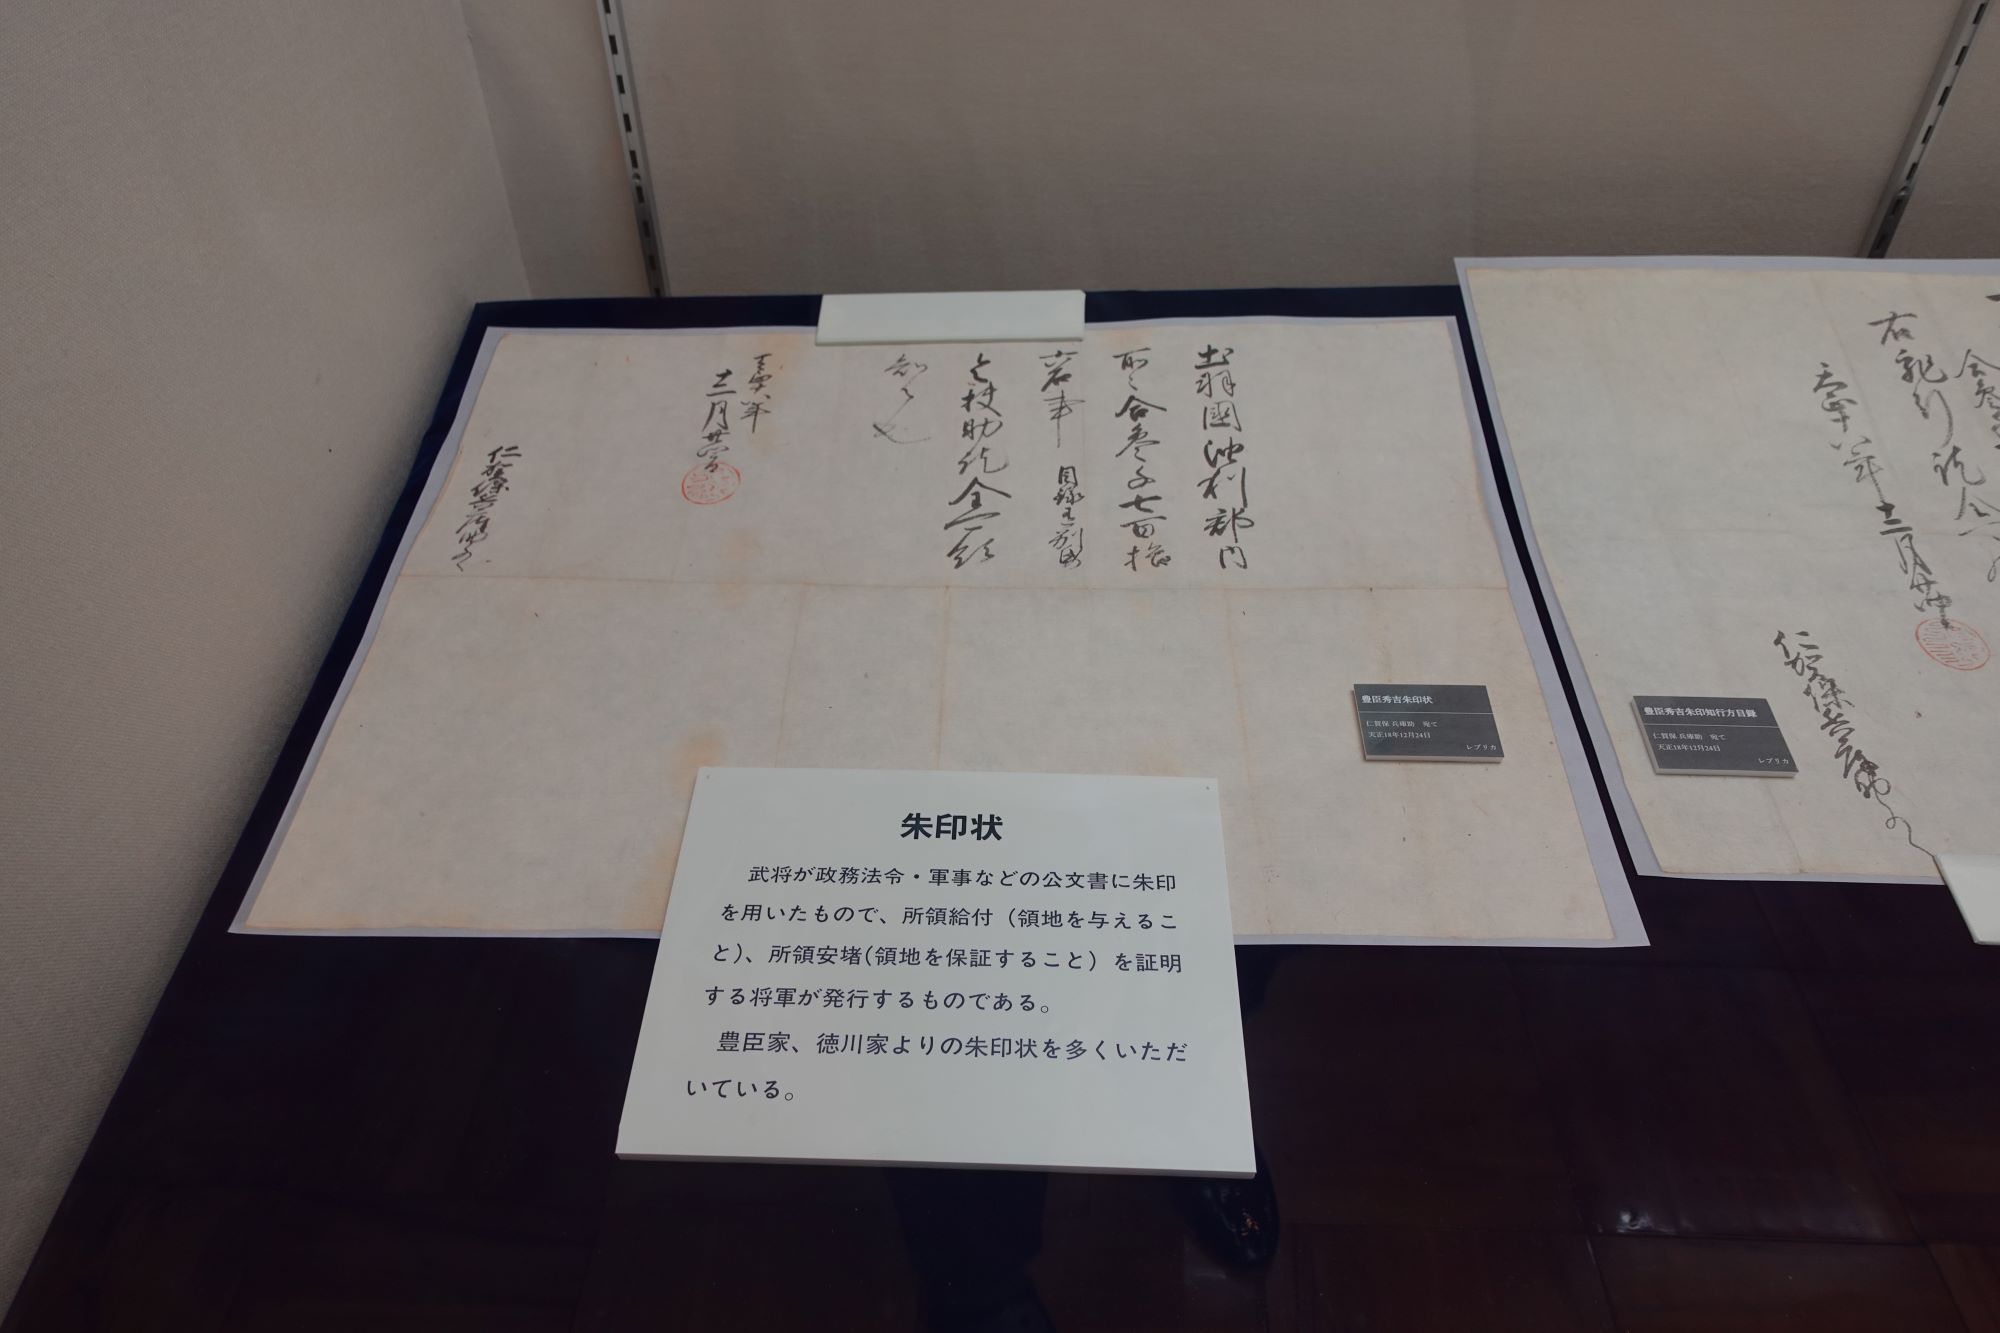 出羽國油利郡内
所々合参千七百拾
六石事 目録在別帋
令扶助訖全可領
知候也
天正十八年
十二月廿四日
仁賀保兵庫助とのへ
右 訖全
天正十八年十二月廿四日
仁賀保兵庫助とのへ
豊臣秀吉朱印状
仁賀保 兵庫助　宛て
天正18年12月24日
レプリカ
豊臣秀吉朱印知行方目録
仁賀保 兵庫助　宛て
天正18年12月24日
レプリカ
朱印状
武将が政務法令・軍事などの公文書に朱印
を用いたもので、所領給付（領地を与えるこ
と）、所領安堵(領地を保証すること）を証明
する将軍が発行するものである。
豊臣家、徳川家よりの朱印状を多くいただ
いている。